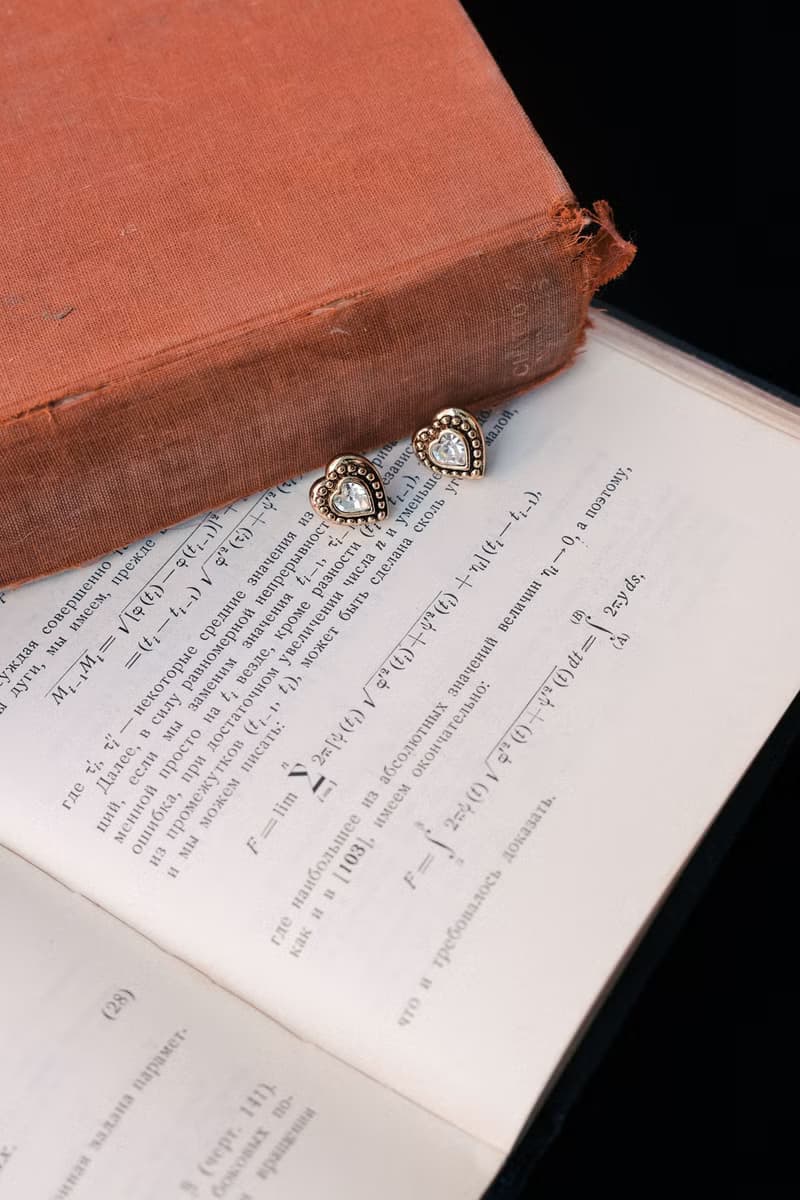 CHATTO &
уждая совершенно
дуги, мы имеем, прежде
M_{i-1}M_i = √{[φ(t_i) − φ(t_{i-1})]² +
= (t_i − t_{i-1}) √{φ'²(τ_i') + ψ'²(
где τ_i', τ_i'' — некоторые средние значения из
Далее, в силу равномерной непрерывност
ций, если мы заменим значения t_{i-1}, τ_i'
менной просто на t_i везде, кроме разности (t_i − t_{i-1}),
ошибка, при достаточном увеличении числа n и уменьше
малой,
из промежутков (t_{i-1}, t_i), может быть сделана сколь уг
и мы можем писать:
F = lim ∑_{i=1}^{n} 2π [ψ(t_i) √{φ'²(t_i) + ψ'²(t_i)} + η_i] (t_i − t_{i-1}),
где наибольшее из абсолютных значений величин η_i → 0, а поэтому,
как и в [103], имеем окончательно:
F = ∫ 2πψ(t) √{φ'²(t) + ψ'²(t)} dt = ∫_{(A)}^{(B)} 2πy ds,
что и требовалось доказать.
(28)
задана парамет-
(черт. 141).
боковых по-
вращении